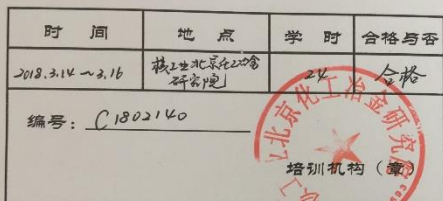 时 间 地 点 学 时 合格与否
2018.3.14~3.16 核工业北京化工冶金研究院 24 合格
编号: C1802140
北京化工冶金研究院
培训机构(章)